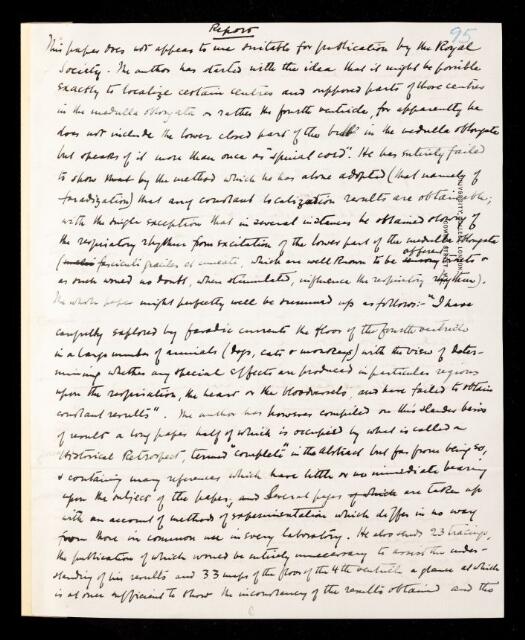 Report
95
This paper does not appear to me suitable for publication by the Royal
Society. The author has started with the idea that it might be possible
exactly to localize certain centres and supposed parts of those centres
in the medulla oblongata or rather the fourth ventricle, for apparently he
does not include the lower closed part of the bulb in the medulla oblongata
but speaks of it more than once as "spinal cord". He has entirely failed
to show that by the method which he has alone adopted (that namely of
faradization) that any constant localization results are obtainable;
with the single exception that in several instances he obtained slowing of
the respiratory rhythm from excitation of the lower part of the medulla oblongata
( fasciculi graciles et cuneati, which are well known to be afferent tracts &
as such would no doubt, when stimulated, influence the respiratory rhythm).
The whole paper might perfectly well be summed up as follows:- "I have
carefully explored by faradic currents the floor of the fourth ventricle
in a large number of animals (dogs, cats & monkeys) with the view of deter-
mining whether any special effects are produced in particular regions
upon the respiration, the heart or the bloodvessels, and have failed to obtain
constant results". The author has however compiled on this slender basis
of result a long paper half of which is occupied by what is called a
"Historical Retrospect", termed "complete" in the abstract but far from being so,
& containing many references which have little or no immediate bearing
upon the subject of the paper, and several pages of which are taken up
with an account of methods of experimentation which differ in no way
from those in common use in every laboratory. He also sends 23 tracings,
the publication of which would be entirely unnecessary to the under-
standing of his results and 33 maps of the floor of the 4th ventricle a glance at which
is at once sufficient to show the inconstancy of the results obtained and the
UNIVERSITY COLLEGE LONDON
GOWER STREET